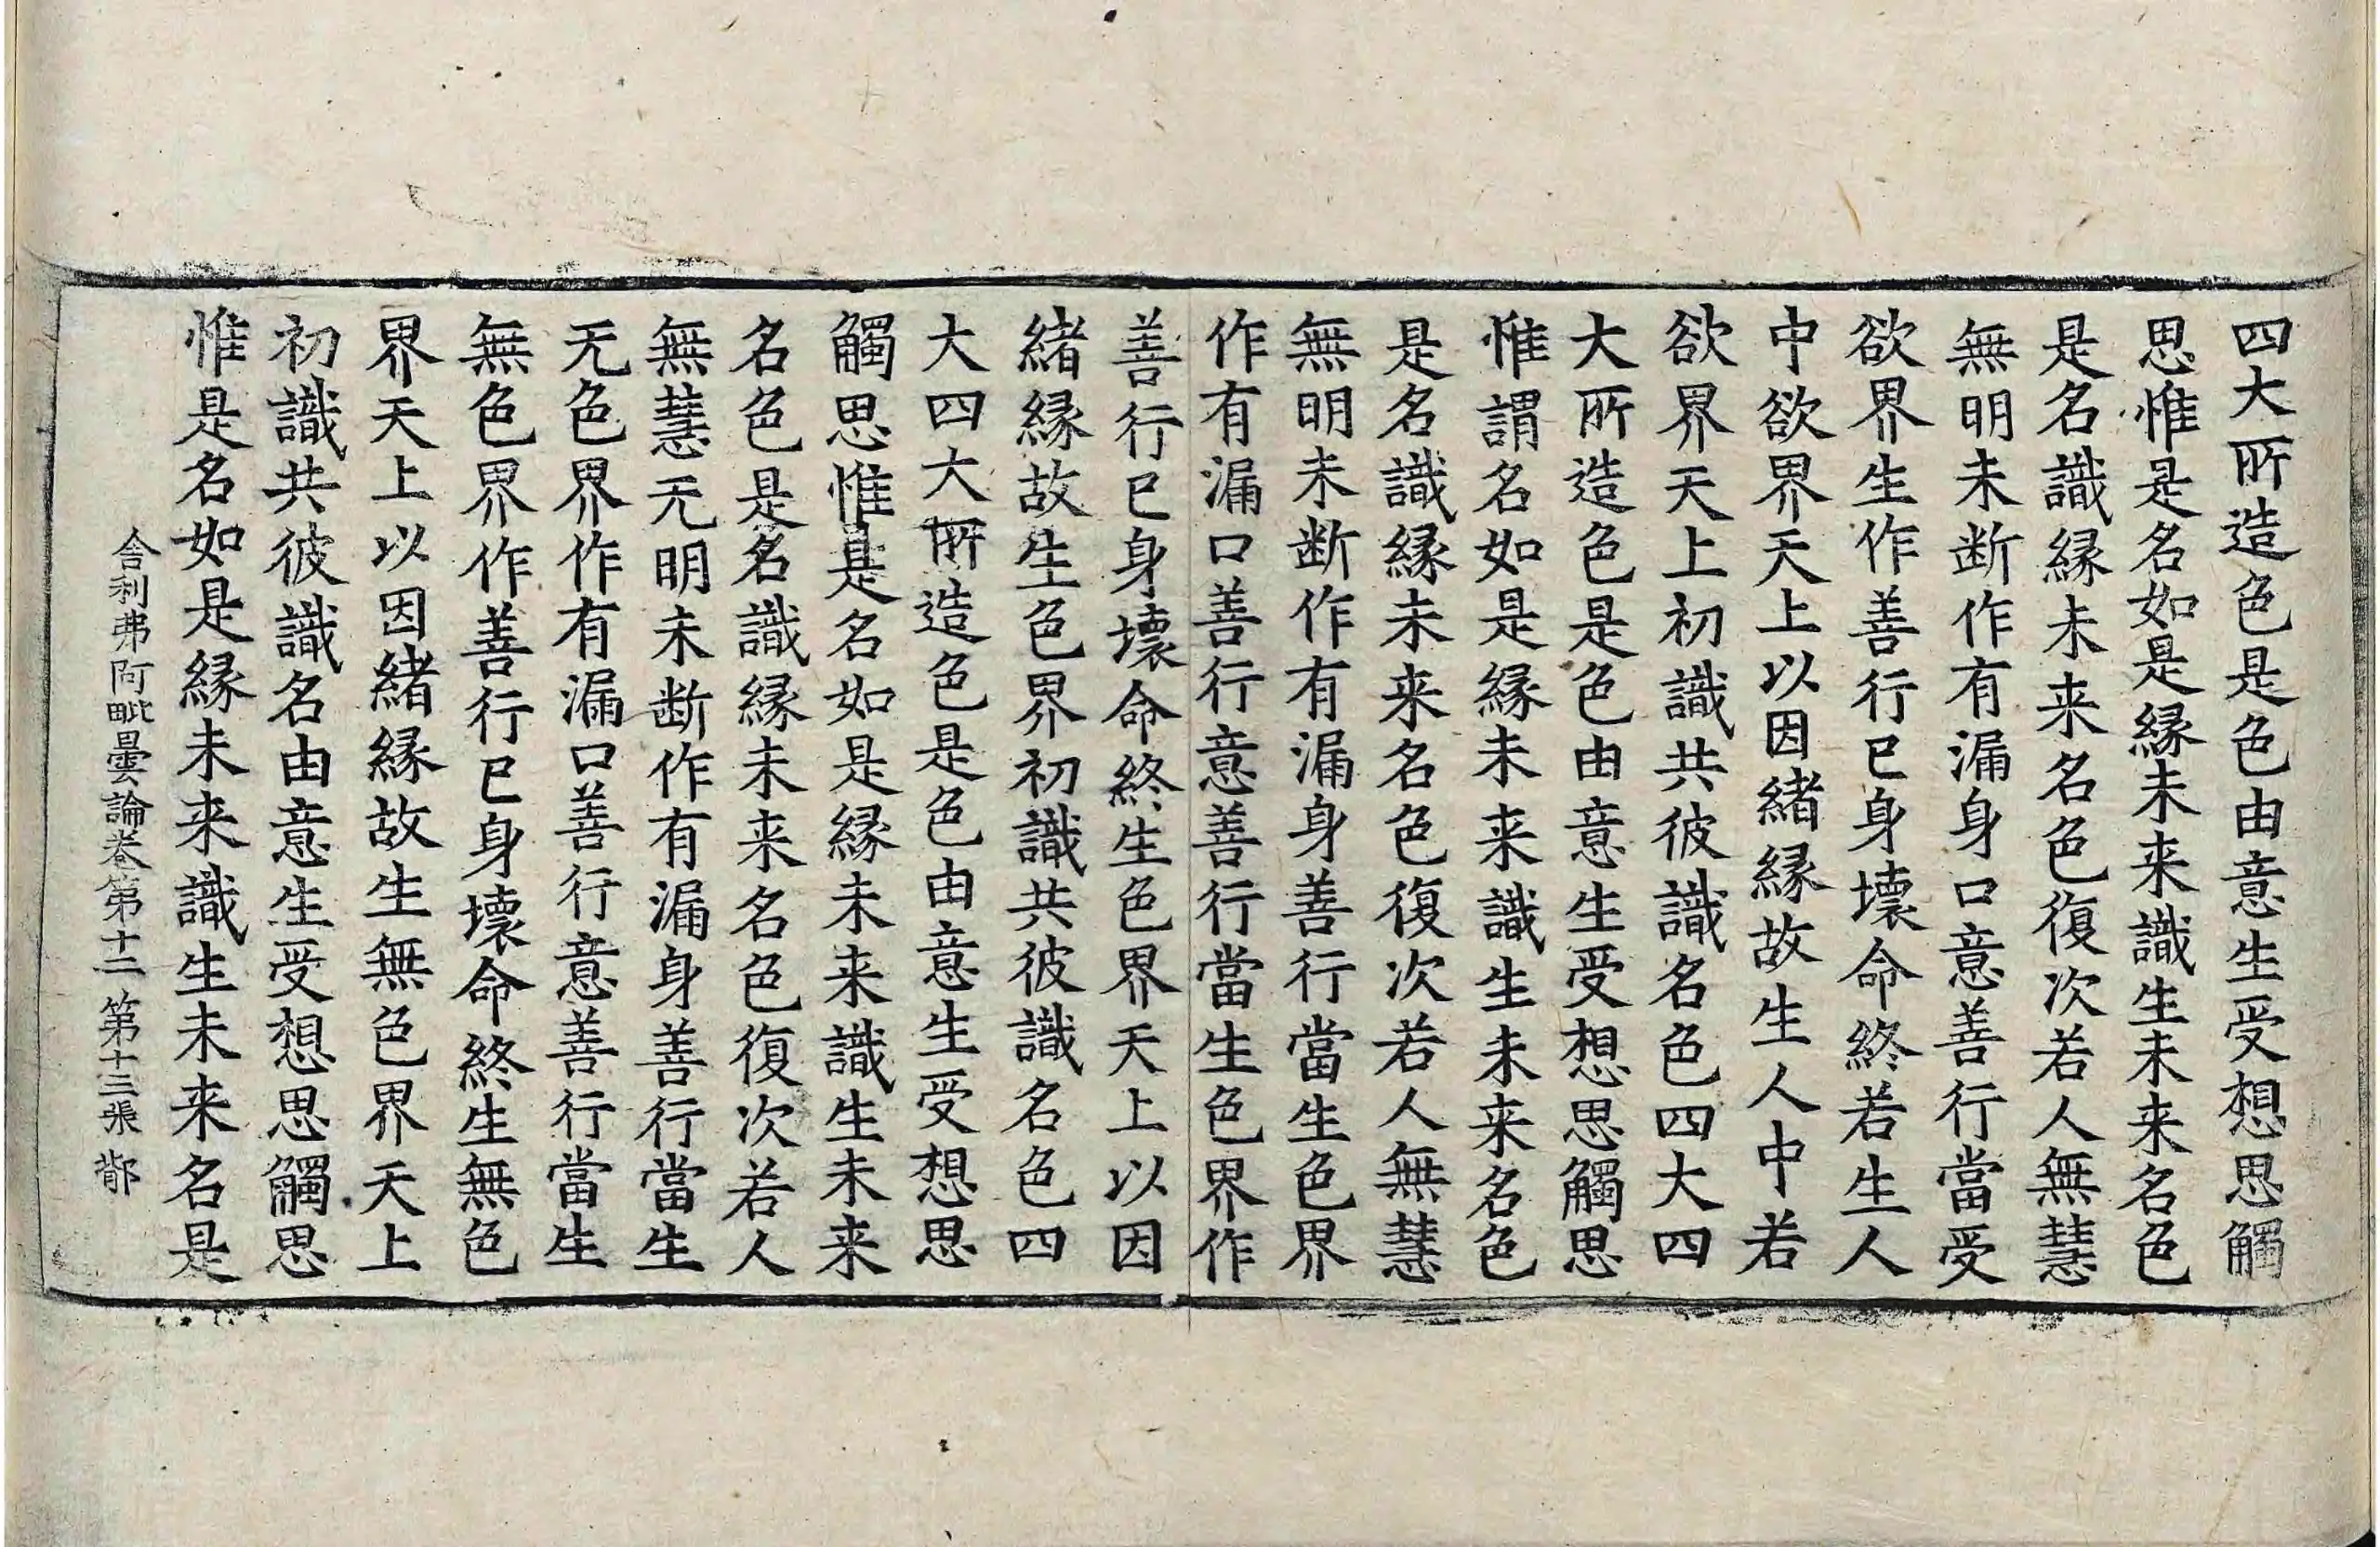 四大所造色是色由意生受想思觸
思惟是名如是緣未来識生未来名色
是名識緣未来名色復次若人無慧
無明未断作有漏身口意善行當受
欲界生作善行已身壞命終若生人
中欲界天上以因緒緣故生人中若
欲界天上初識共彼識名色四大四
大所造色是色由意生受想思觸思
惟謂名如是緣未来識生未来名色
是名識緣未来名色復次若人無慧
無明未断作有漏身善行當生色界
作有漏口善行意善行當生色界作
善行已身壞命終生色界天上以因
緒緣故生色界初識共彼識名色四
大四大所造色是色由意生受想思
觸思惟是名如是緣未来識生未来
名色是名識緣未来名色復次若人
無慧无明未断作有漏身善行當生
无色界作有漏口善行意善行當生
無色界作善行已身壞命終生無色
界天上以因緒緣故生無色界天上
初識共彼識名由意生受想思觸思
惟是名如是緣未来識生未来名是
舍利弗阿毗曇論卷第十二 第十三張